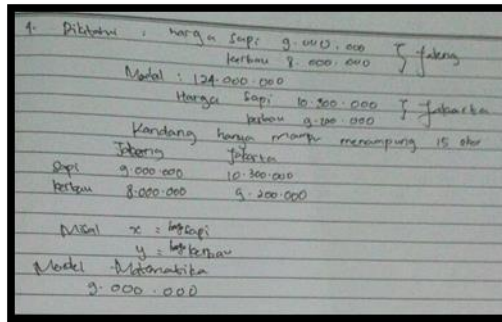 4. Diketahui : harga Sapi 9.000.000 } Jateng
kerbau 8.000.000
Modal : 124.000.000
Harga Sapi 10.300.000 } Jakarta
kerbau 9.200.000
Kandang hanya mampu menampung 15 ekor
Jateng Jakarta
Sapi 9.000.000 10.300.000
kerbau 8.000.000 9.200.000
Misal x = Sapi
y = kerbau
Model Matematika
9.000.000